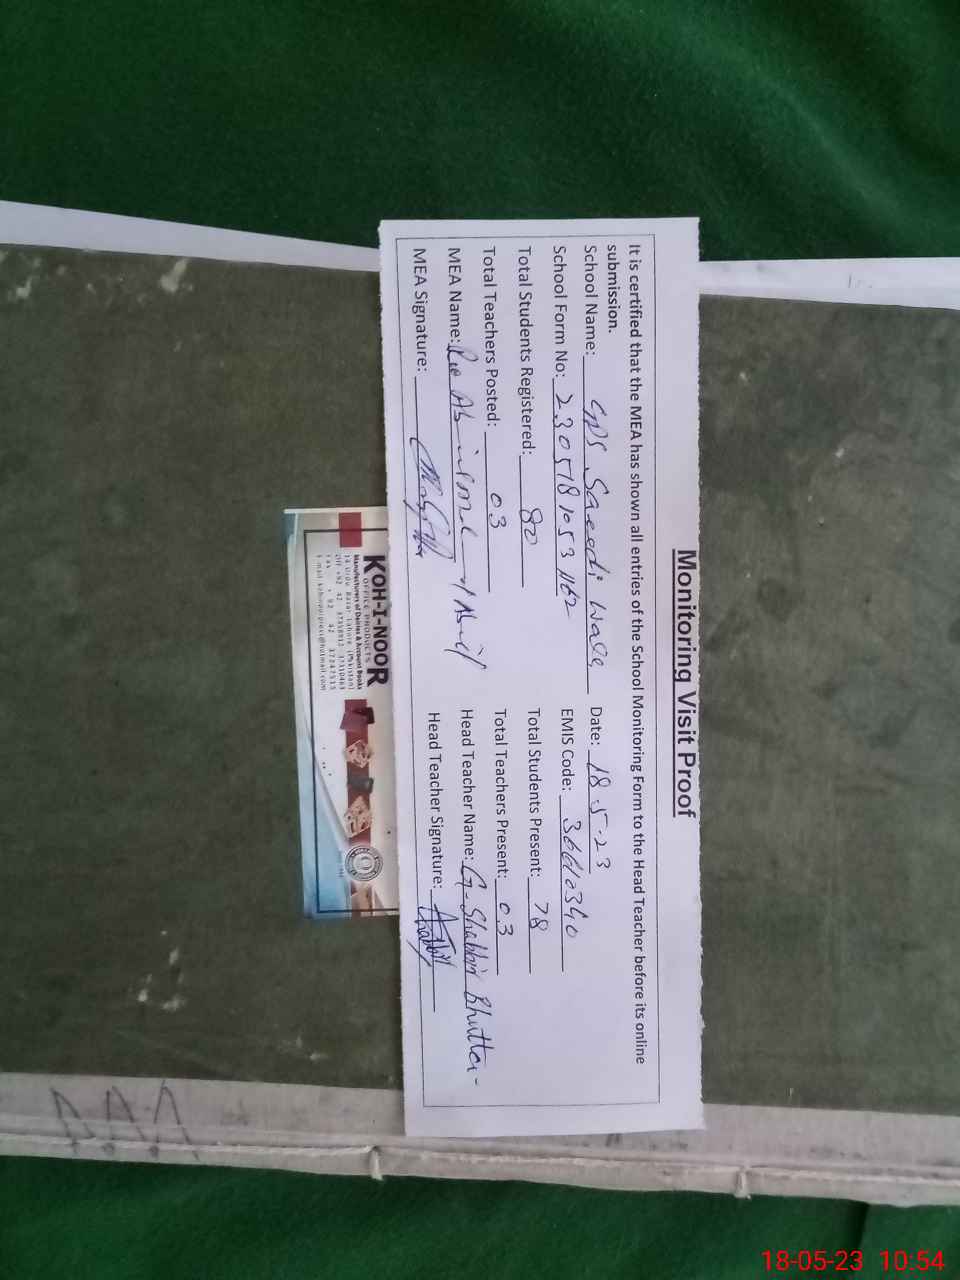 Monitoring Visit Proof
It is certified that the MEA has shown all entries of the School Monitoring Form to the Head Teacher before its online
submission.
School Name: GPS Saeedi Wala Date: 18.5.23
School Form No: 23051810531162 EMIS Code: 36610340
Total Students Registered: 80 Total Students Present: 78
Total Teachers Posted: 03 Total Teachers Present: 03
MEA Name: Head Teacher Name: G. Shabbir Bhutta-
MEA Signature: Head Teacher Signature:
KOH-I-NOOR
OFFICE PRODUCTS
Manufacturers of Dairies & Account Books
14 Urdu Bazar Lahore (Pakistan)
Off +92 42 37358912 37310463
Fax : +92 42 37247515
E-mail kohinoorpress@hotmail.com
18-05-23 10:54